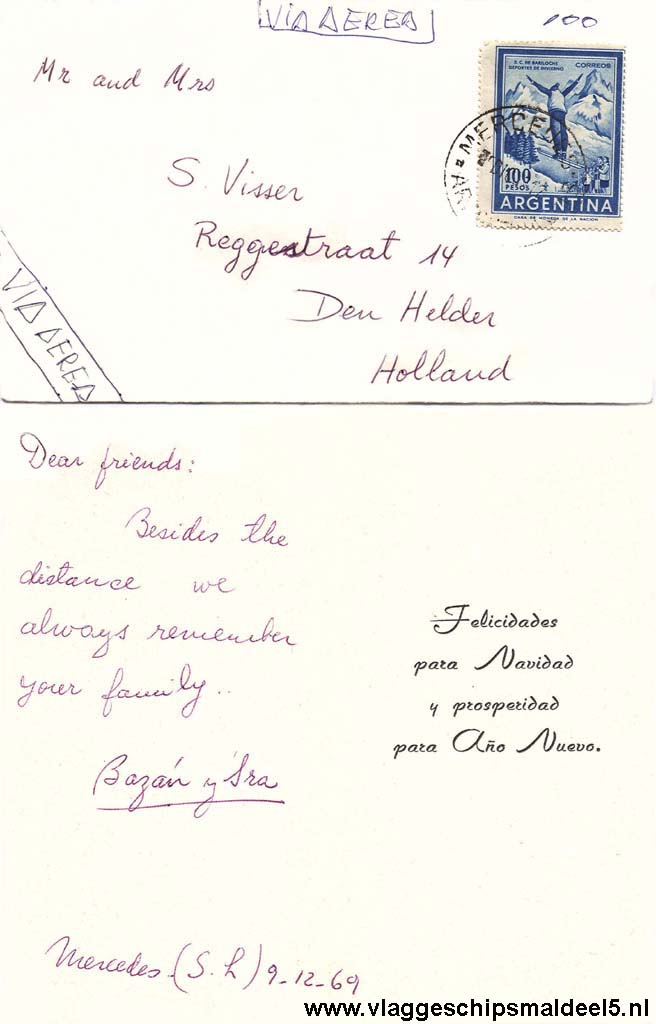 VIA AEREA
100
Mr and Mrs
S. Visser
Reggestraat 14
Den Helder
Holland
VIA AEREA
S.C. DE BARILOCHE
DEPORTES DE INVIERNO
CORREOS
100
PESOS
ARGENTINA
CASA DE MONEDA DE LA NACION
MERCEDES
Dear friends:
Besides the
distance we
always remember
your family..
Bazán y Sra
Mercedes (S. L) 9-12-69
Felicidades
para Navidad
y prosperidad
para Año Nuevo.
www.vlaggeschipsmaldeel5.nl